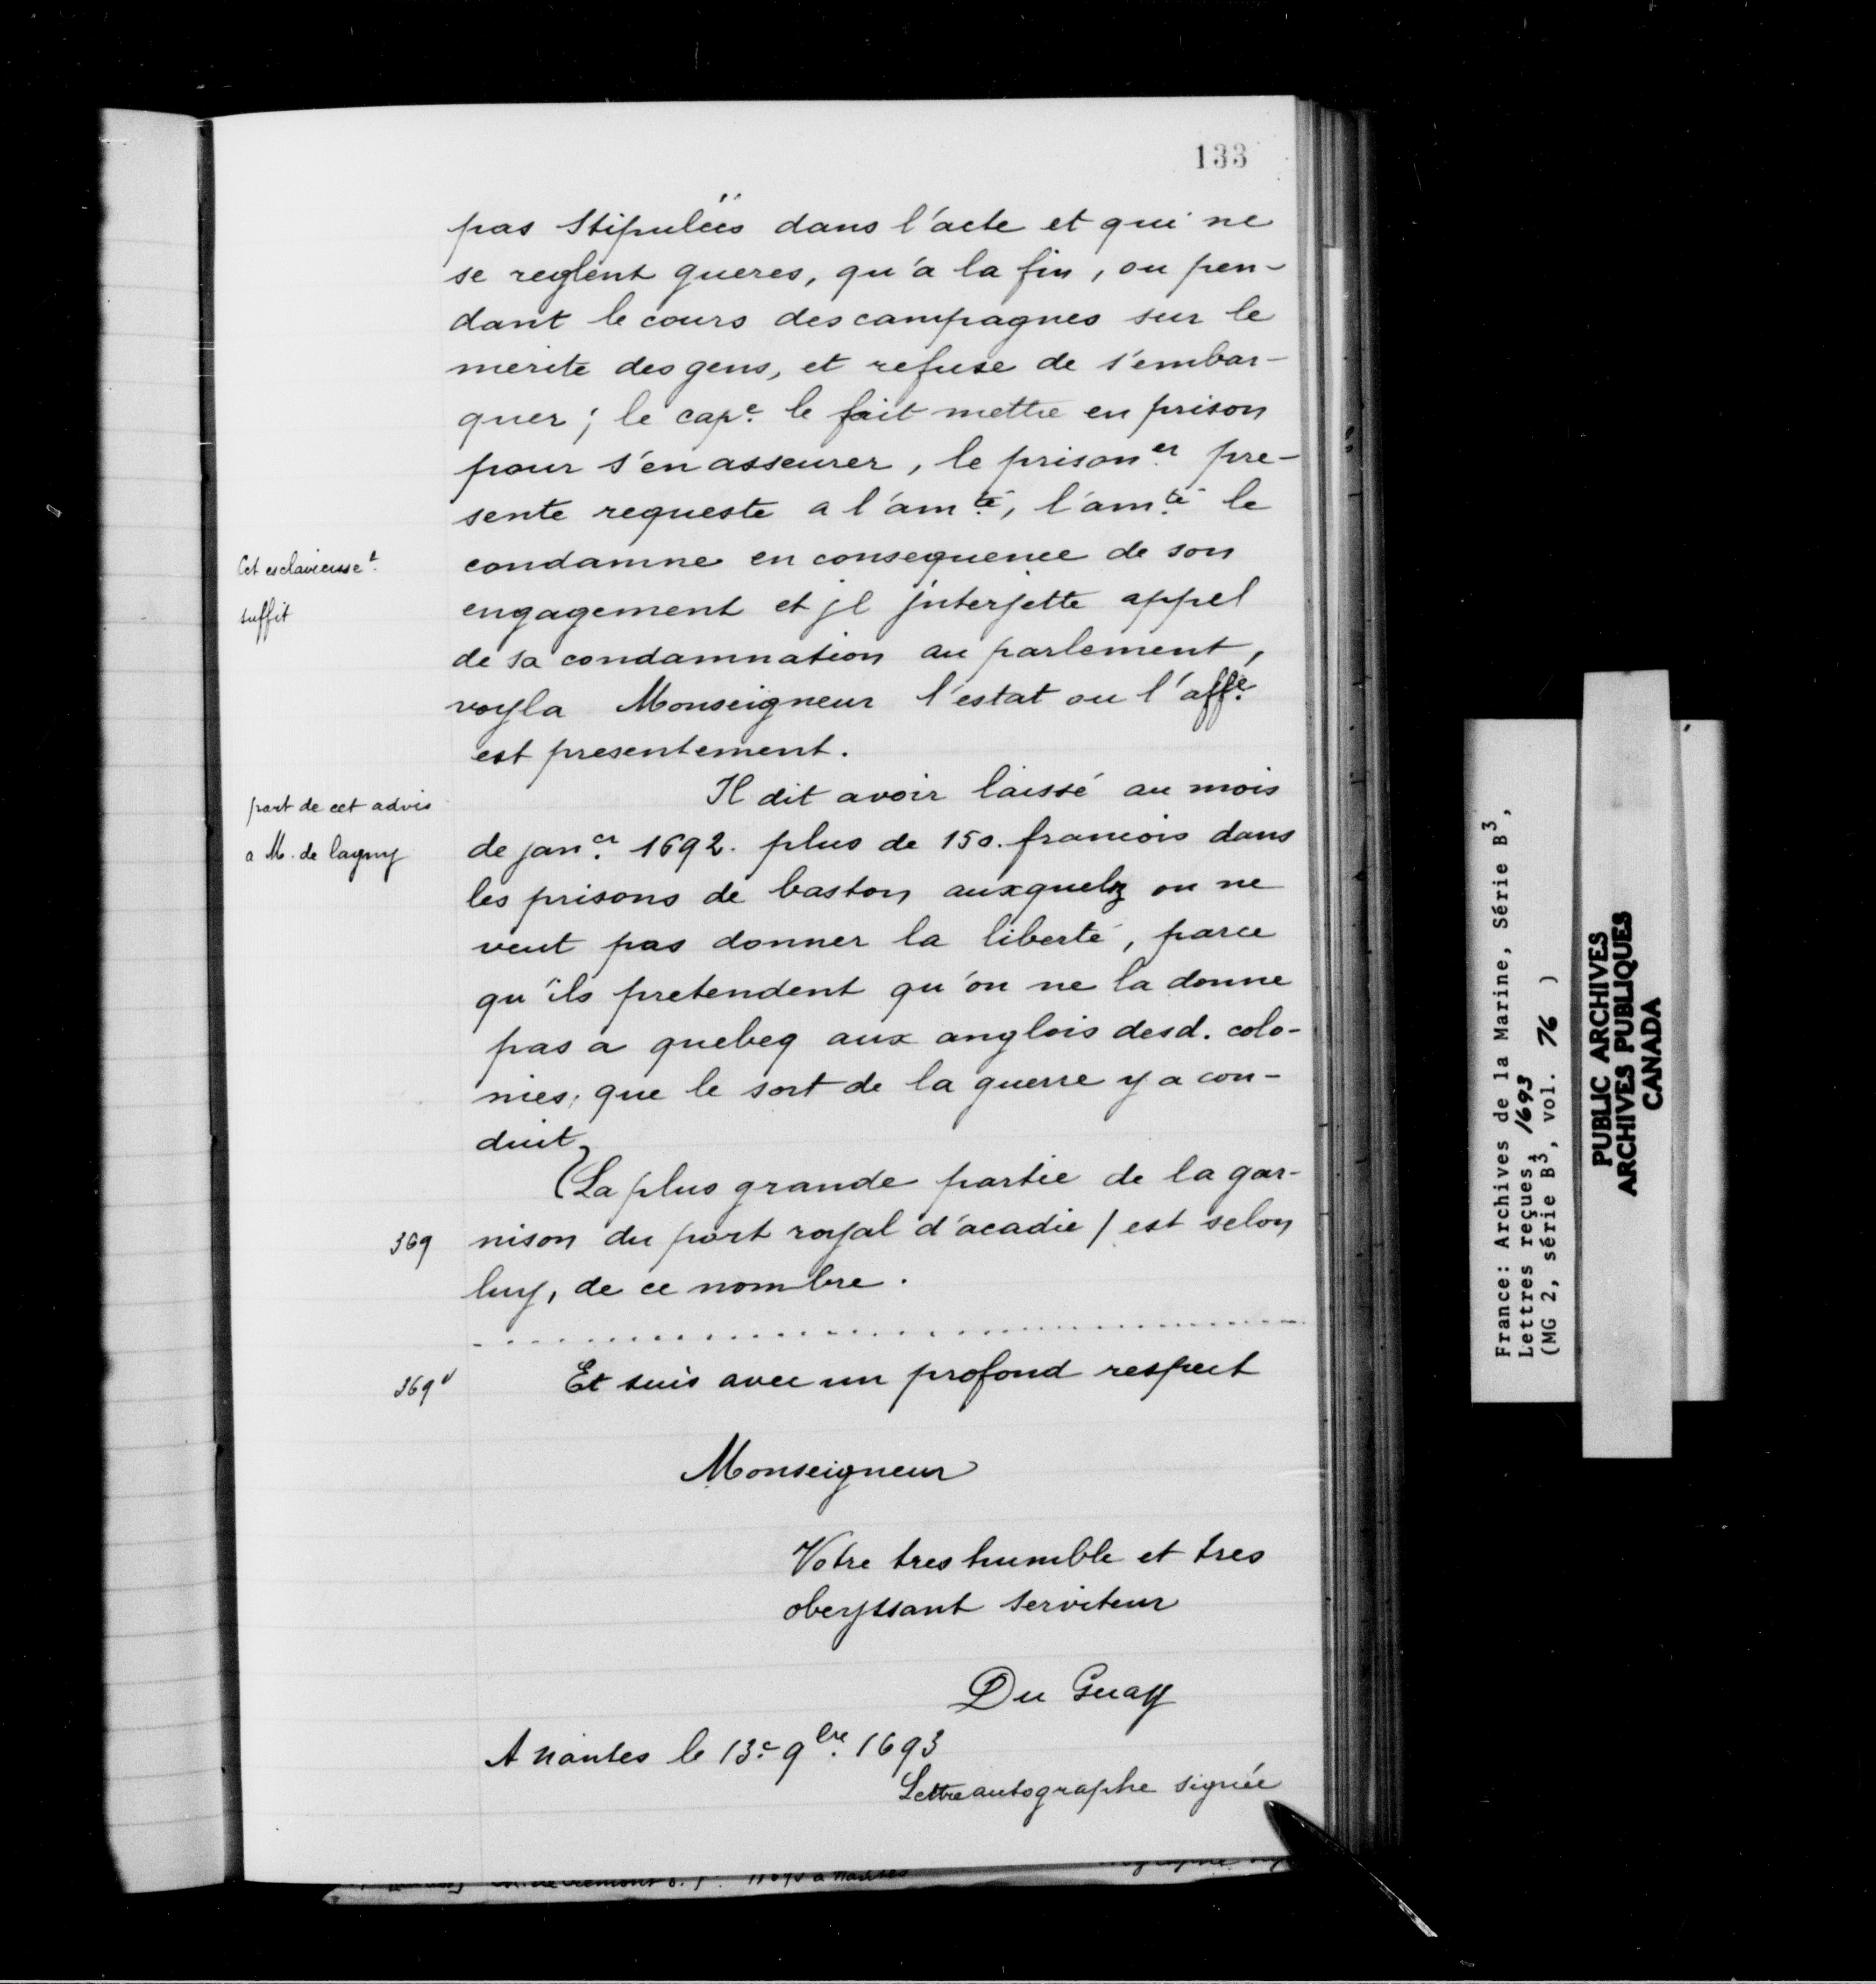 133
pas Stipulées dans l'acte et qui ne
se reglent gueres, qu'a la fin, ou pen-
dant le cours des campagnes sur le
merite des gens, et refuse de s'embar-
quer; le cap.e le fait mettre en prison
pour s'en asseurer, le prison.er pre-
sente requeste a l'am.té, l'am.té le
Cet esclaircisse.t
suffit
condamne en consequence de son
engagement et jl jnterjette appel
de sa condamnation au parlement,
voyla Monseigneur l'estat ou l'aff.e
est presentement.
part de cet advis
a M. de lagny
Il dit avoir laissé au mois
de jan.er 1692. plus de 150. francois dans
les prisons de baston auxquelz on ne
veut pas donner la liberté, parce
qu'ils pretendent qu'on ne la donne
pas a quebeq aux anglois desd. colo-
nies, que le sort de la guerre y a con-
duit
La plus grande partie de la gar-
369 nison du port royal d'acadie / est selon
luy, de ce nombre.
369v Et suis avec un profond respect
Monseigneur
Votre tres humble et tres
obeyssant serviteur
Du Guay
A nantes le 13.e 9.bre 1693
Lettre autographe signée
France: Archives de la Marine, Série B3,
Lettres reçues, 1693
(MG 2, série B3, vol. 76 )
PUBLIC ARCHIVES
ARCHIVES PUBLIQUES
CANADA